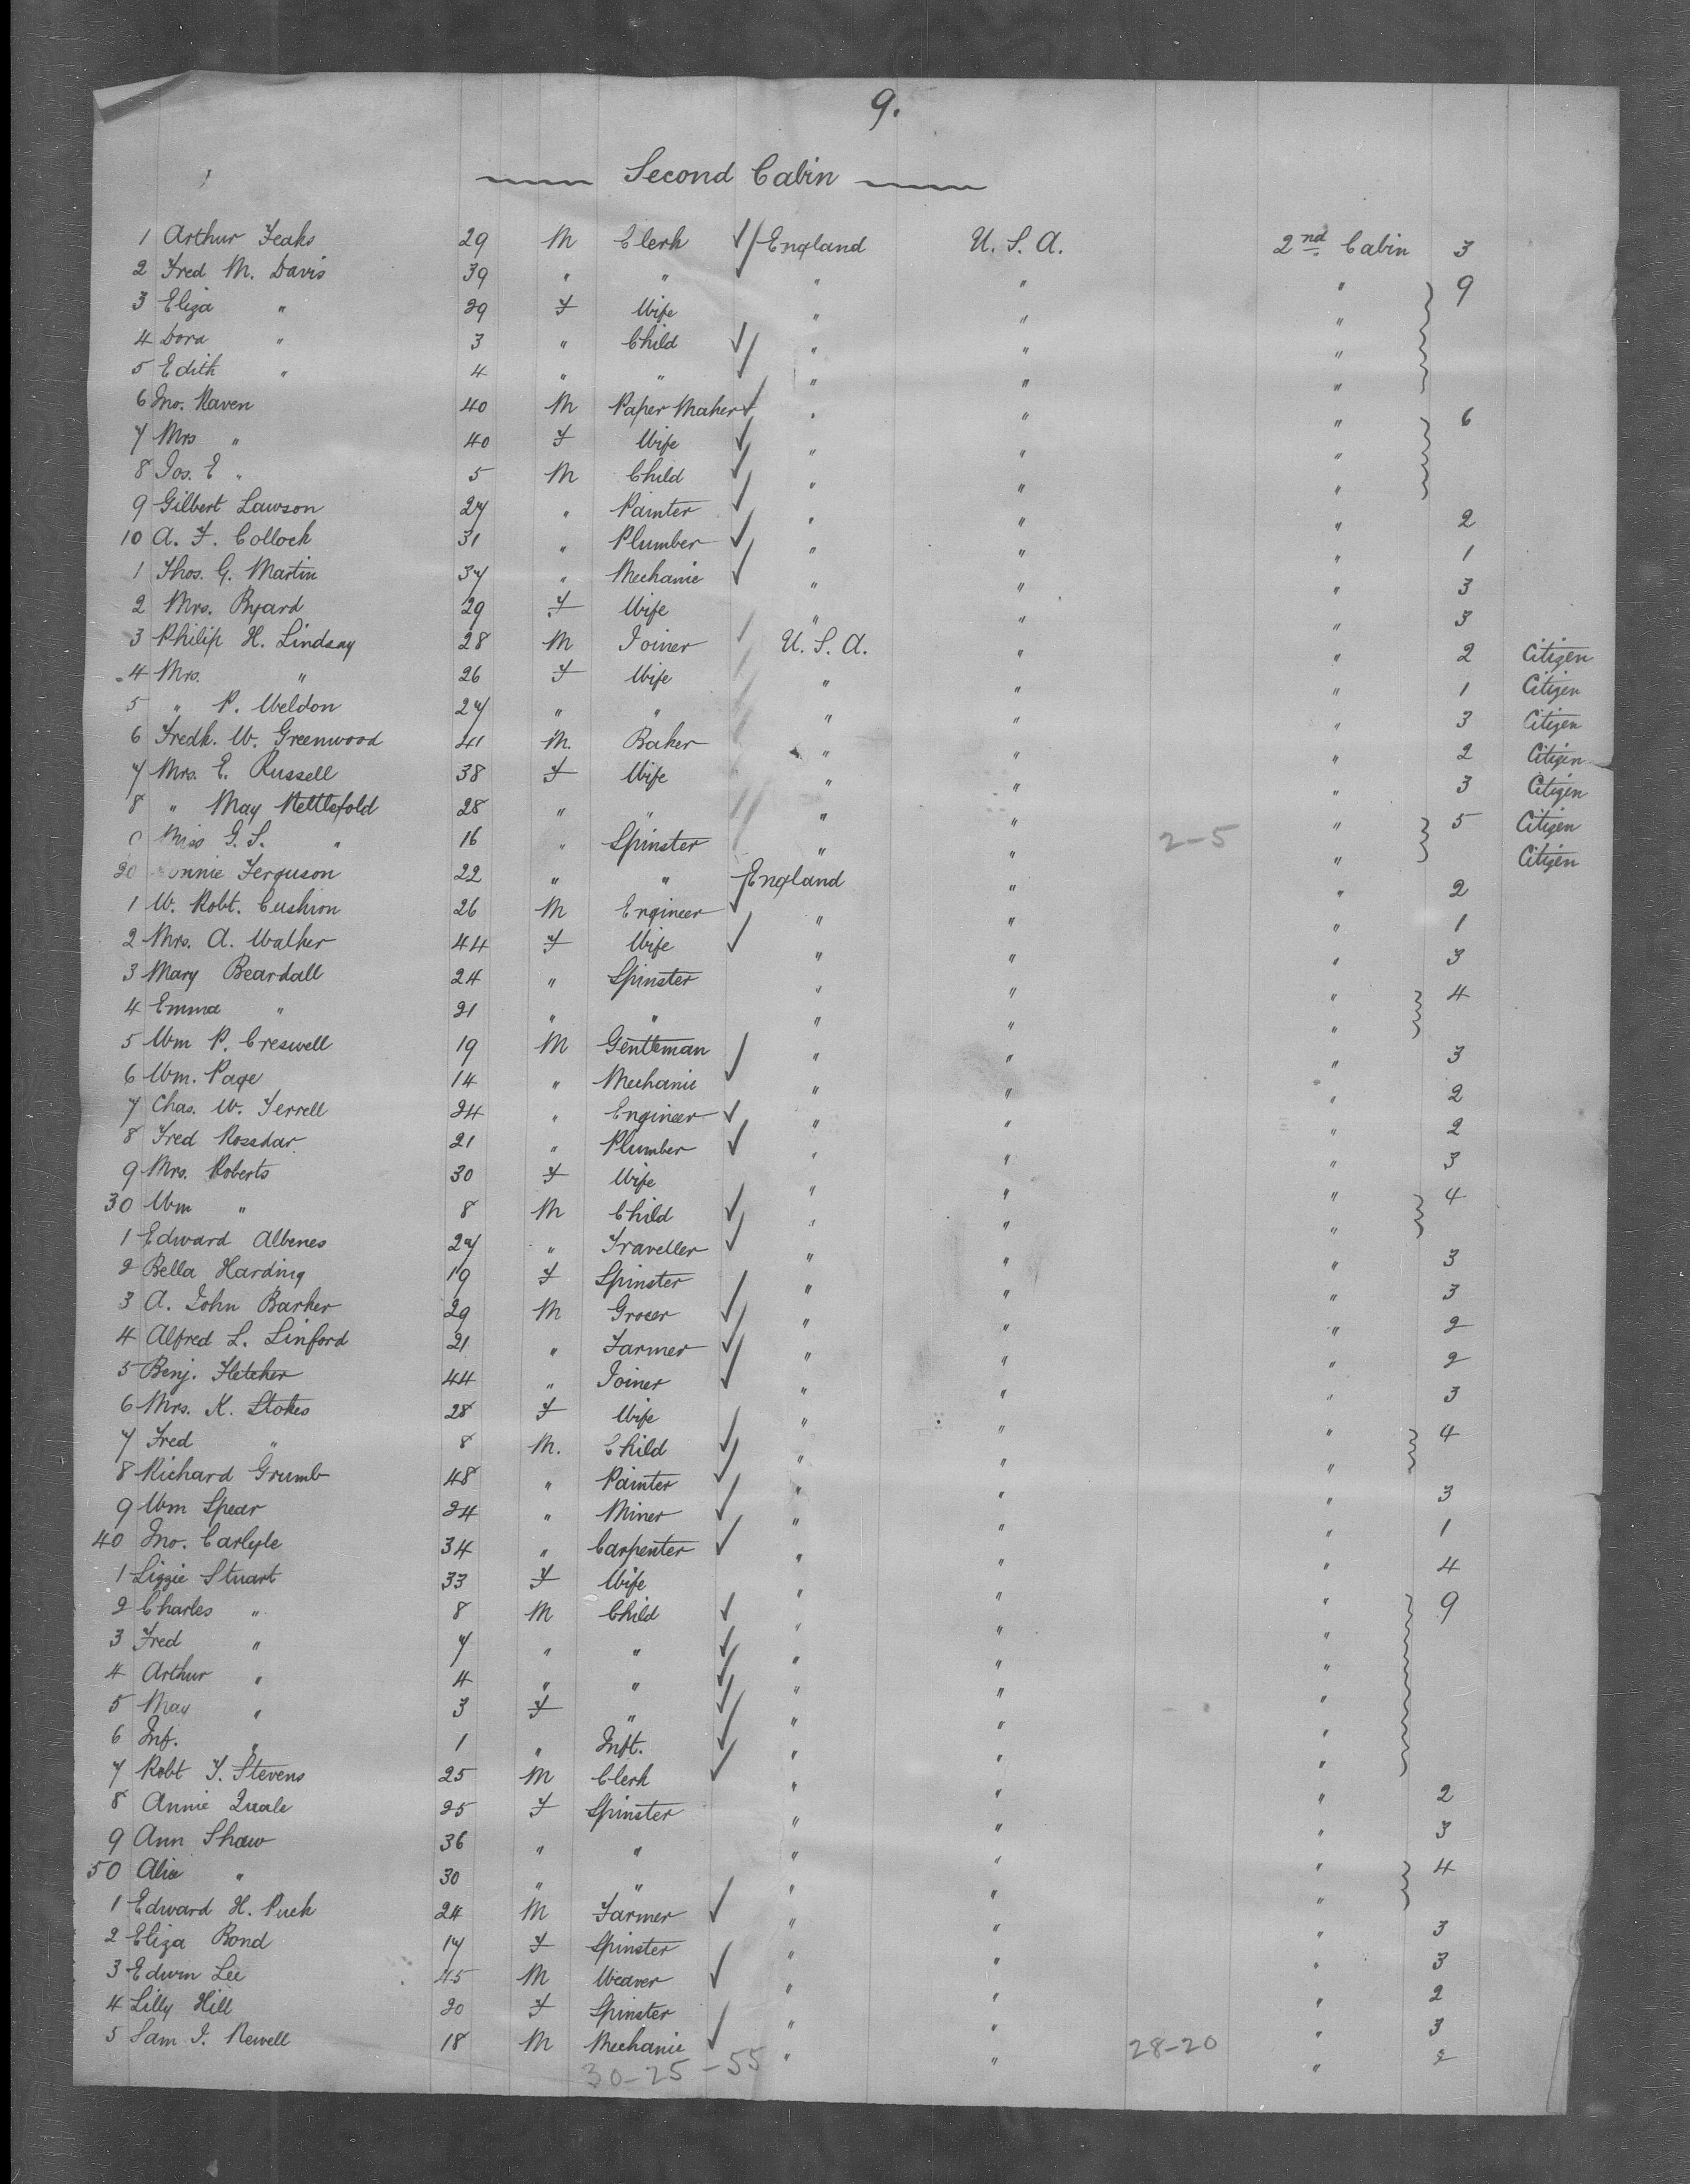 9.
Second Cabin
1 Arthur Feaks 29 M Clerk ✓ England U. S. A. 2nd Cabin 3
2 Fred M. Davis 39 " " ✓ " " " 9
3 Eliza " 29 F Wife " " "
4 Dora " 3 " Child ✓ " " "
5 Edith " 4 " " ✓ " " "
6 Jno. Raven 40 M Paper Maker ✓ " " " 6
7 Mrs " 40 F Wife ✓ " " "
8 Jos. E " 5 M Child ✓ " " "
9 Gilbert Lawson 27 " Painter ✓ " " " 2
10 A. F. Collock 31 " Plumber ✓ " " " 1
1 Thos. G. Martin 37 " Mechanic ✓ " " " 3
2 Mrs. Byard 29 F Wife " " " 3
3 Philip H. Lindsay 28 M Joiner U. S. A. " " 2 Citizen
4 Mrs. " 26 F Wife " " " 1 Citizen
5 " P. Weldon 27 " " " " " 3 Citizen
6 Fredk. W. Greenwood 41 M. Baker " " " 2 Citizen
7 Mrs. E. Russell 38 F Wife " " " 3 Citizen
8 " May Nettlefold 28 " " " " " 5 Citizen
Miss G. S. " 16 " Spinster " " 2-5 " Citizen
20 Ferguson 22 " " England " " 2
1 W. Robt. Cushion 26 M Engineer ✓ " " " 1
2 Mrs. A. Walker 44 F Wife ✓ " " " 3
3 Mary Beardall 24 " Spinster " " " 4
4 Emma " 21 " " " " "
5 Wm P. Creswell 19 M Gentleman ✓ " " " 3
6 Wm. Page 14 " Mechanic " " " 2
7 Chas. W. Terrell 24 " Engineer ✓ " " " 2
8 Fred Rossdar 21 " Plumber ✓ " " " 3
9 Mrs. Roberts 30 F Wife " " " 4
30 Wm " 8 M Child ✓ " " "
1 Edward Albenes 27 " Traveller ✓ " " " 3
2 Bella Harding 19 F Spinster " " " 3
3 A. John Barker 29 M Grocer ✓ " " " 2
4 Alfred L. Linford 21 " Farmer ✓ " " " 2
5 Benj. Fletcher 44 " Joiner ✓ " " " 3
6 Mrs. K. Stokes 28 F Wife " " " 4
7 Fred " 8 M. Child ✓ " " "
8 Richard Grumb 48 " Painter ✓ " " " 3
9 Wm Spear 24 " Miner ✓ " " " 1
40 Jno. Carlyle 34 " Carpenter ✓ " " " 4
1 Lizzie Stuart 33 F Wife " " " 9
2 Charles " 8 M Child ✓ " " "
3 Fred " 7 " " ✓ " " "
4 Arthur " 4 " " ✓ " " "
5 May " 3 F " ✓ " " "
6 Inf. " 1 " Inft. ✓ " " "
7 Robt T. Stevens 25 M Clerk ✓ " " " 2
8 Annie Quale 25 F Spinster " " " 3
9 Ann Shaw 36 " " " " " 4
50 Alice " 30 " " " " "
1 Edward H. Puck 24 M Farmer ✓ " " " 3
2 Eliza Bond 17 F Spinster " " " 3
3 Edwin Lee 45 M Weaver ✓ " " " 2
4 Lilly Hill 20 F Spinster " " " 3
5 Sam J. Newell 18 M Mechanic ✓ " " 28-20 " 2
30-25-55